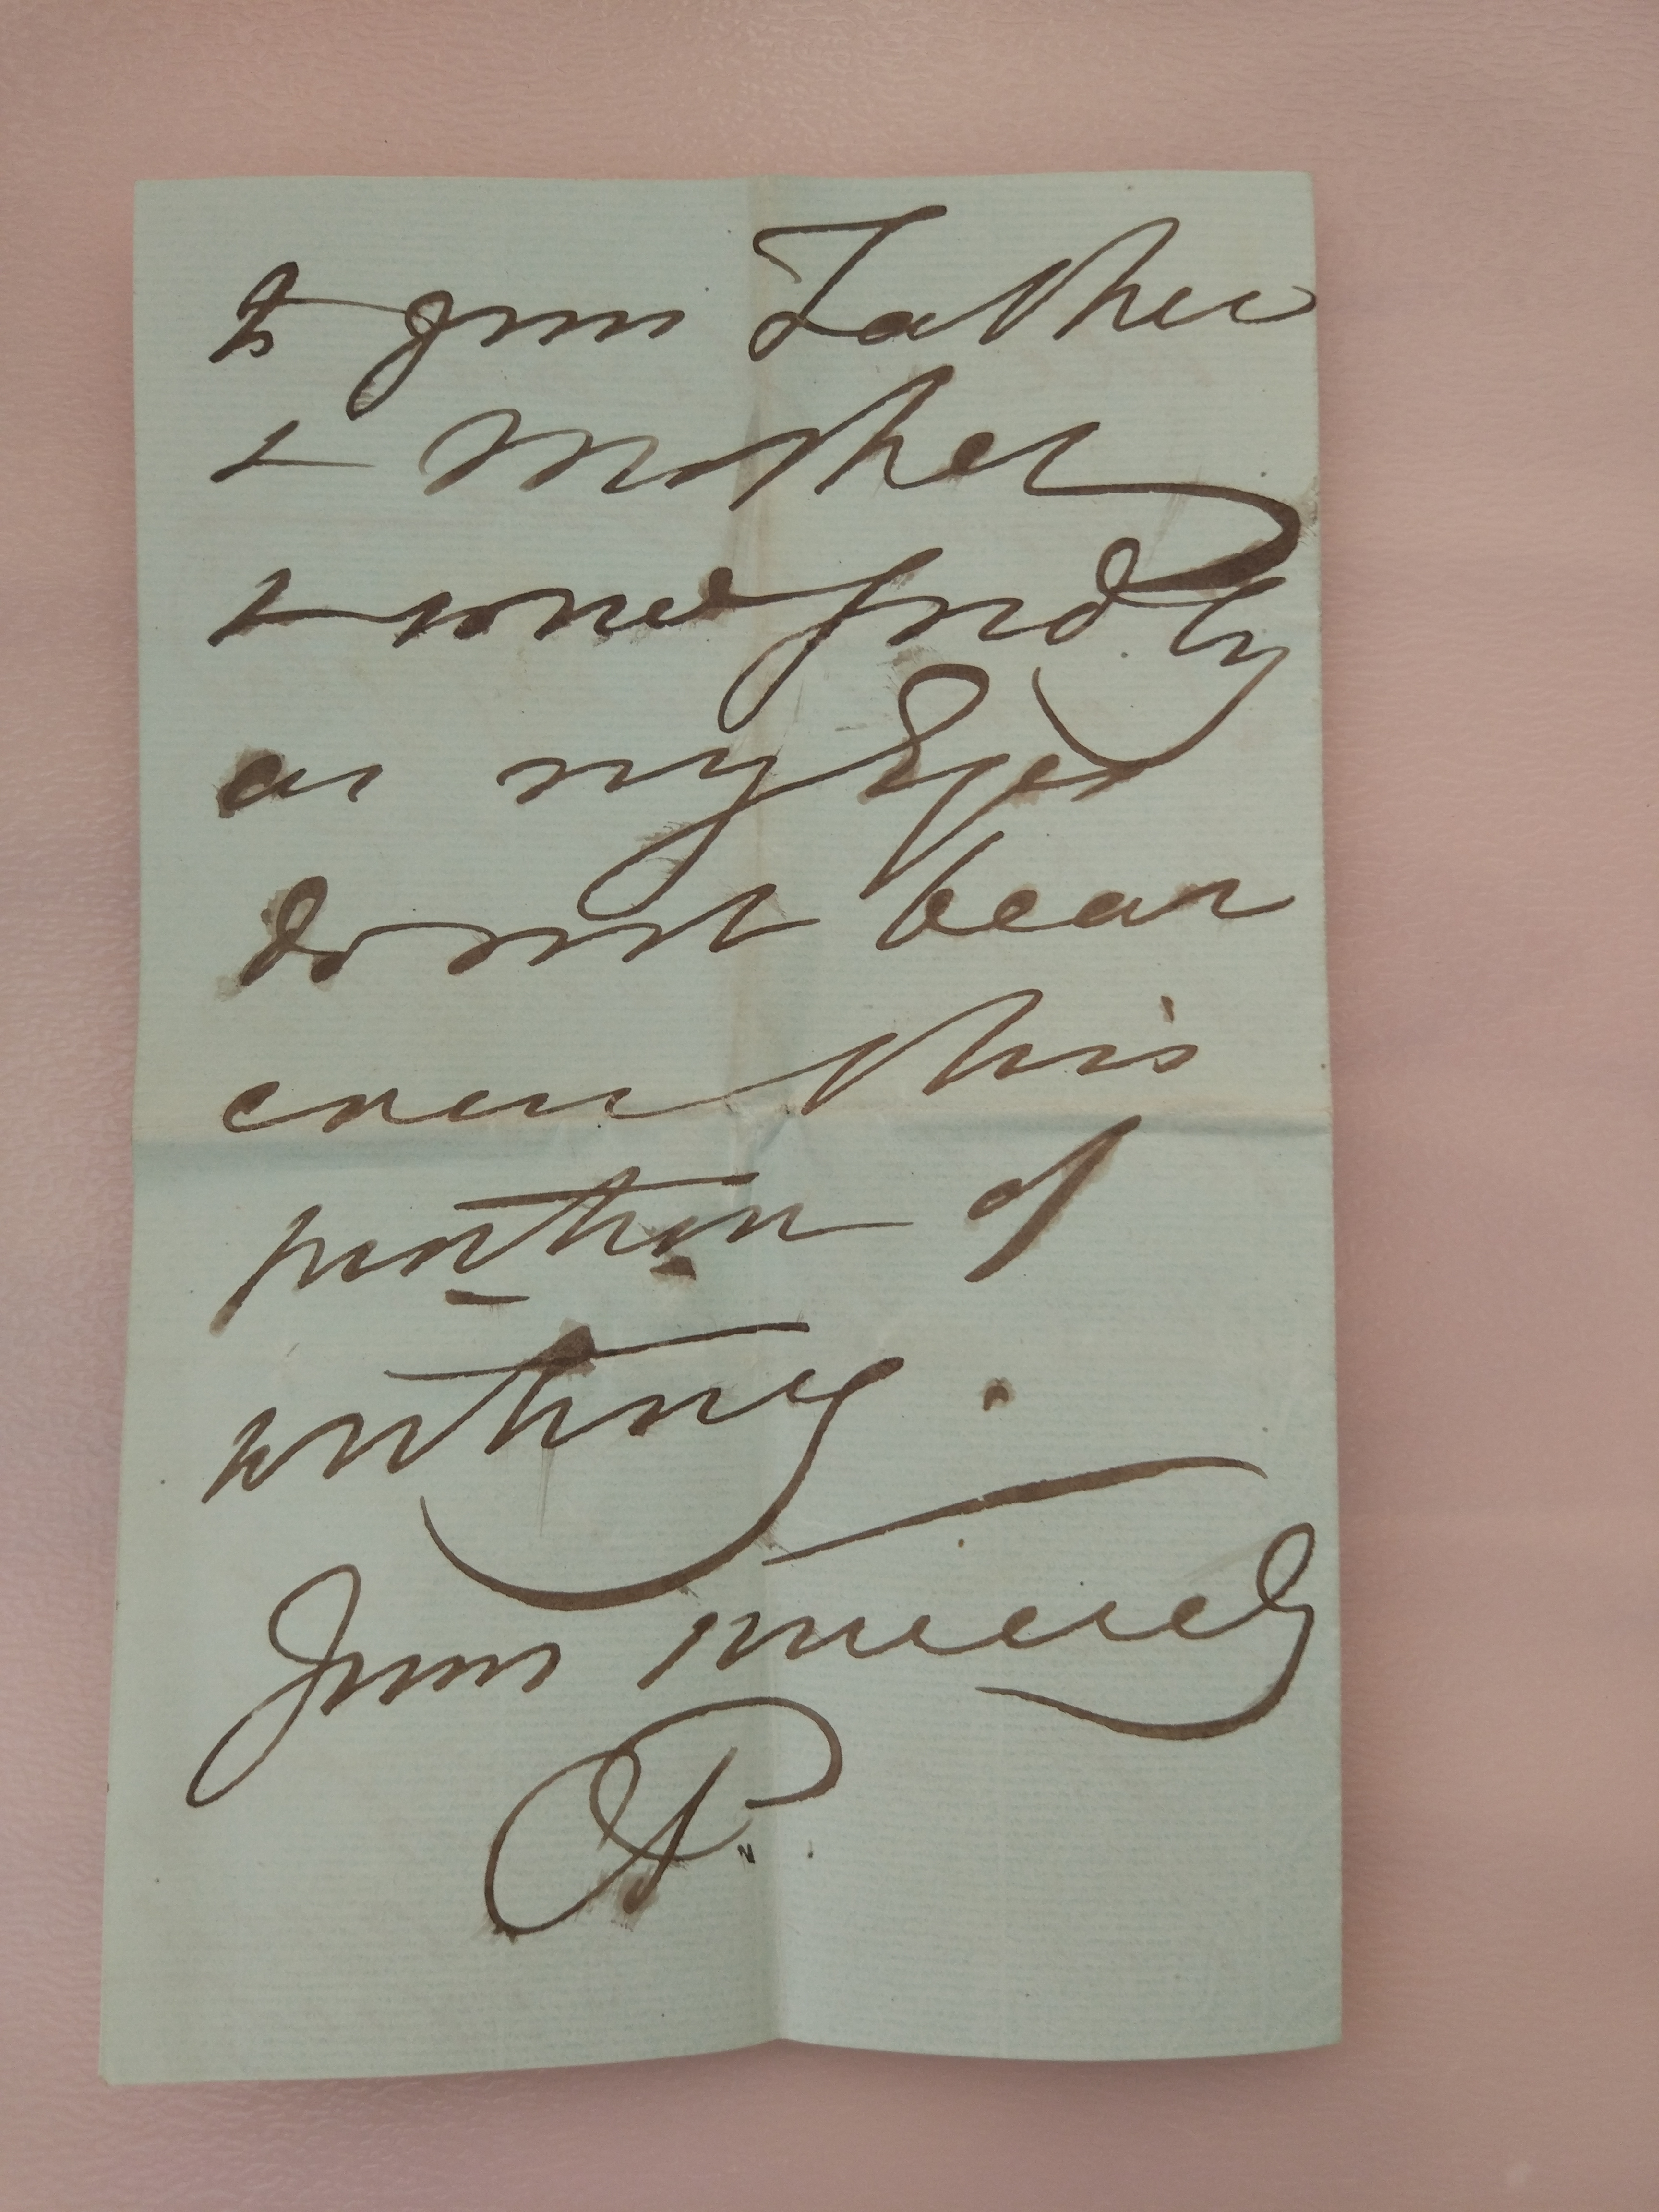 to your Father
& Mother
& some
as my Eyes
do not bear
even this
portion of
writing.
Yours sincerely